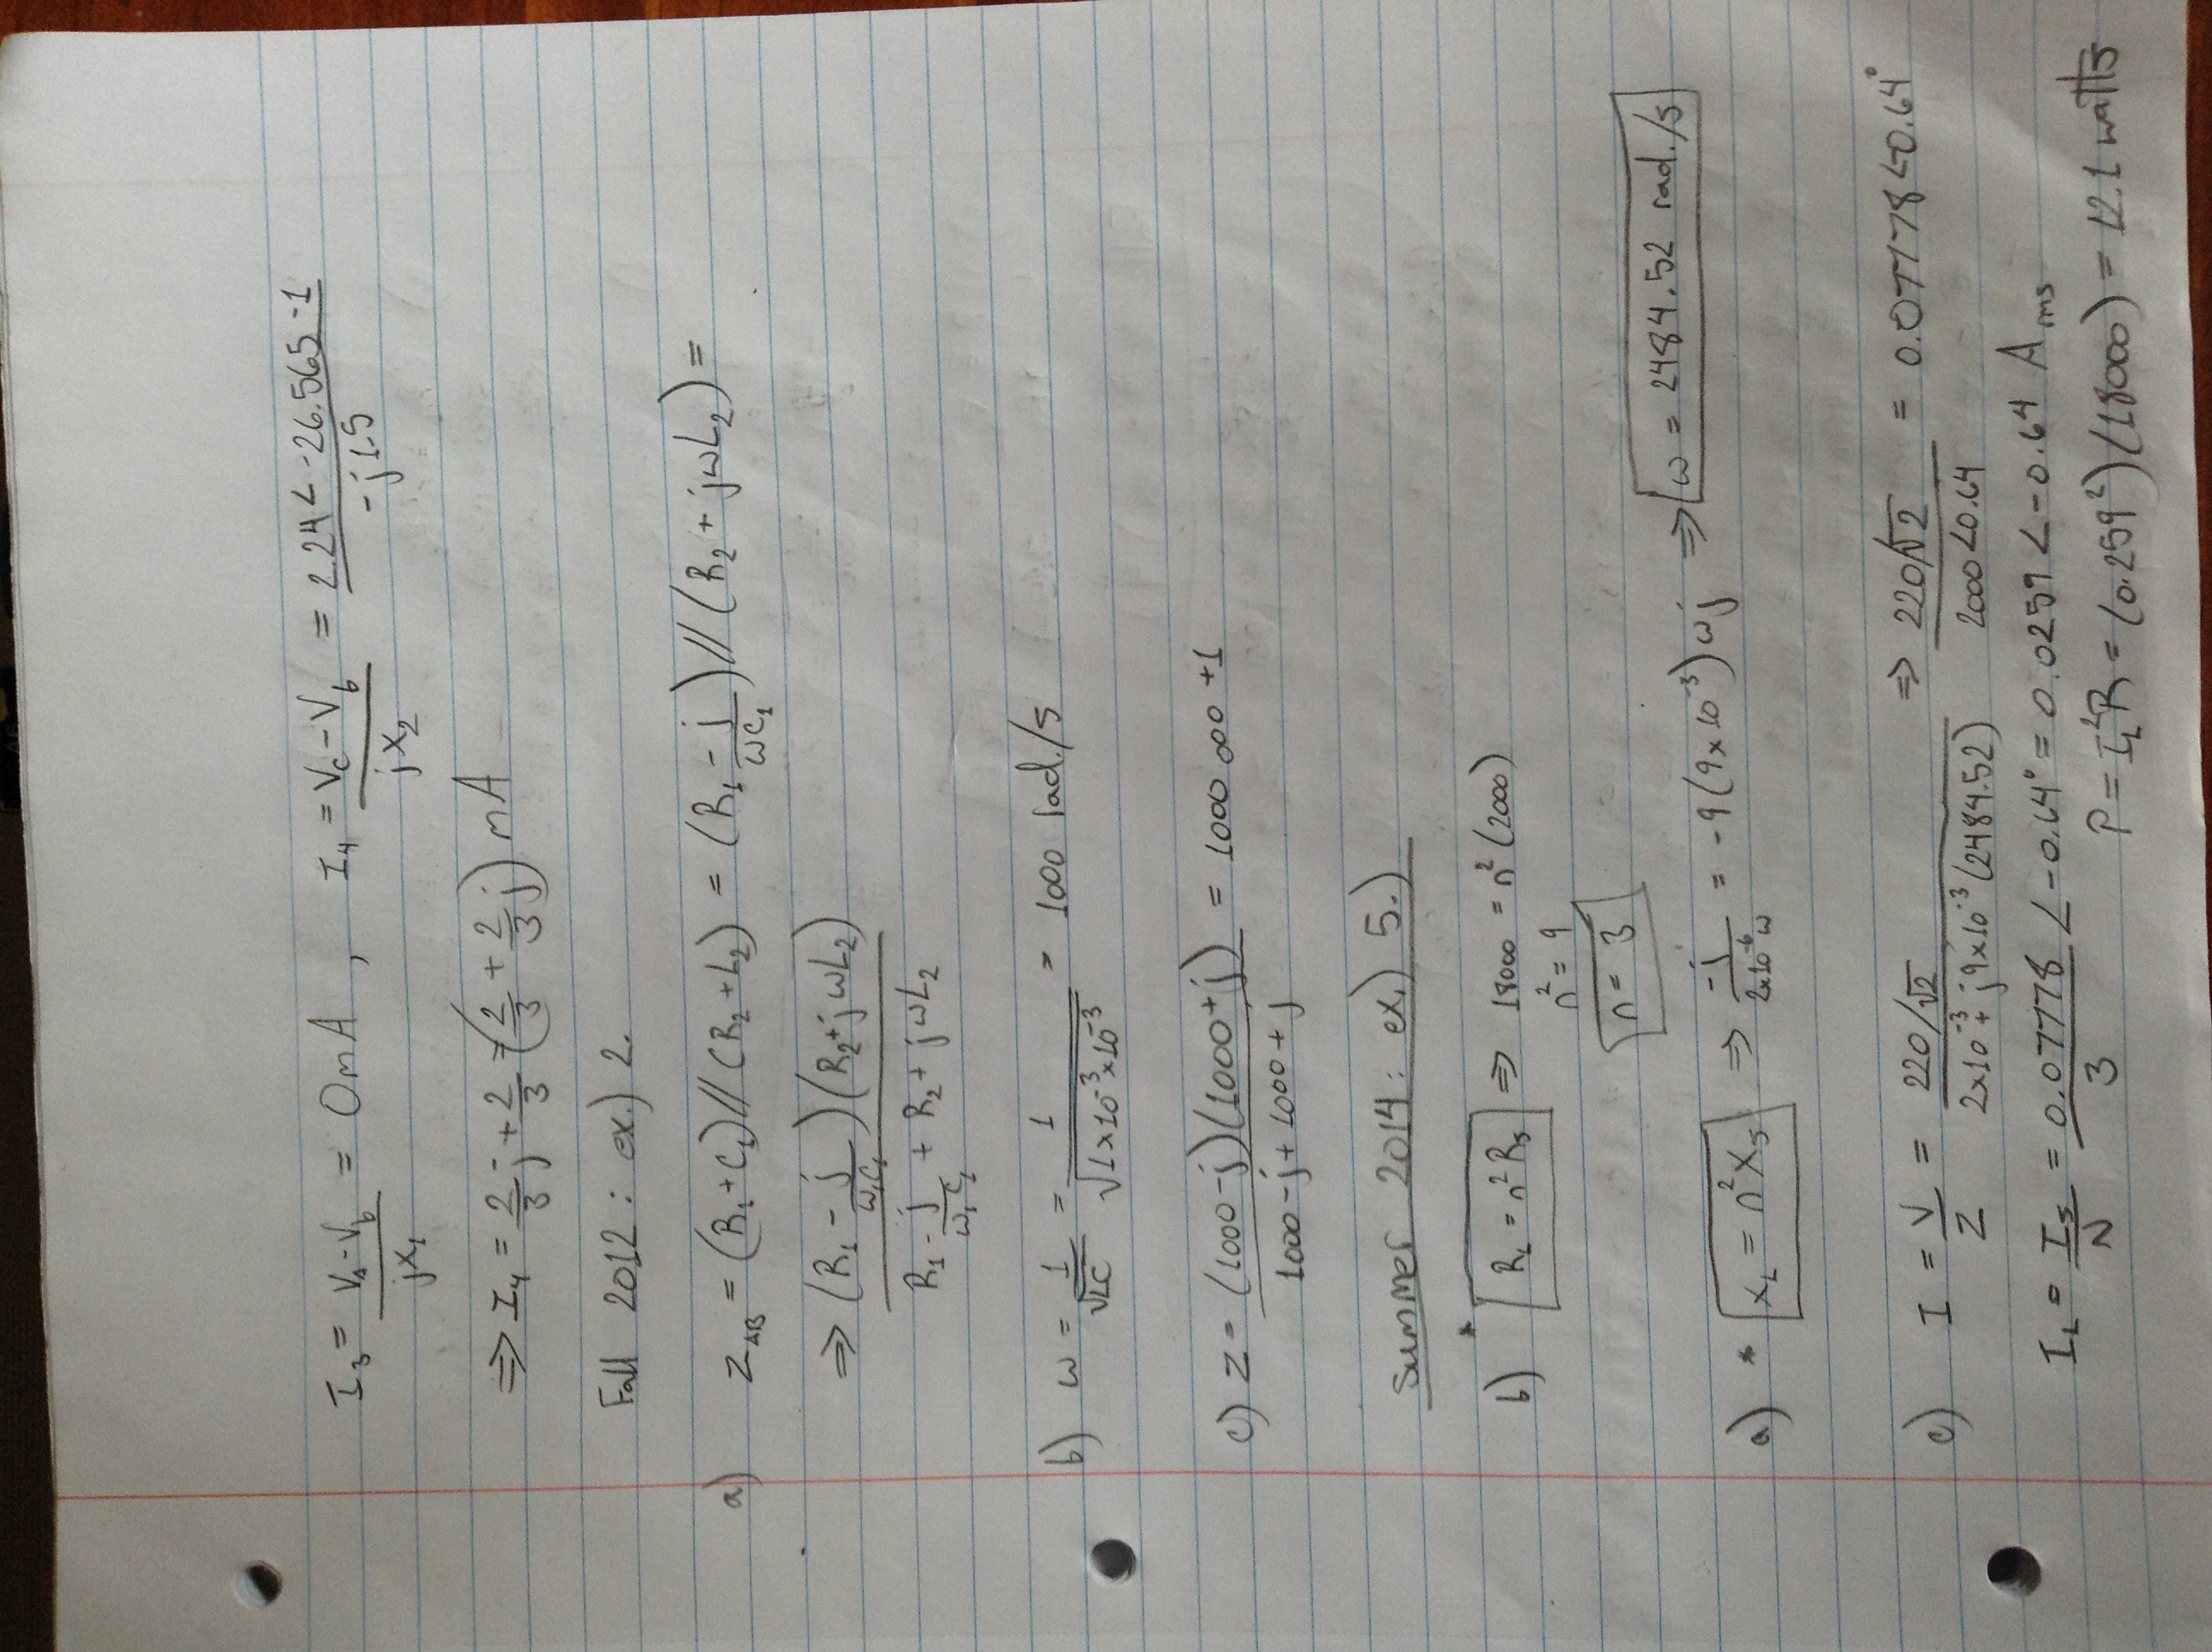 I₃ = (Va-Vb)/(jX₁) = 0mA , I₄ = (Vc-Vb)/(jX₂) = (2.24∠-26.565-1)/(-j1.5)
⇒ I₄ = 2/3 j + 2/3 = (2/3 + 2/3 j) mA
Fall 2012 : ex.) 2.
a) Z_AB = (R₁+C₁)//(R₂+L₂) = (R₁ - j/(ωC₁))//(R₂ + jωL₂) =
⇒ ((R₁ - j/(ω₁C₁))(R₂+jωL₂))/(R₁ - j/(ω₁C₁) + R₂ + jωL₂)
b) ω = 1/√LC = 1/√(1x10⁻³x10⁻³) = 1000 rad./s
c) Z = ((1000-j)(1000+j))/(1000-j+1000+j) = 1000 000 +1
Summer 2014 : ex.) 5.)
b) * R_L = n²R_S ⇒ 18000 = n²(2000)
n² = 9
n = 3
a) * X_L = n²X_S ⇒ -j/(2x10⁻⁶ω) = -9(9x10⁻³)ωj ⇒ ω = 2484.52 rad./s
c) I = V/Z = (220/√2)/(2x10⁻³ + j9x10⁻³(2484.52)) ⇒ (220/√2)/(2000∠0.64) = 0.07778∠-0.64°
I_L = I_S/N = 0.07778/3 ∠-0.64° = 0.0259∠-0.64 A rms
P = I_L²R = (0.259²)(18000) = 12.1 watts